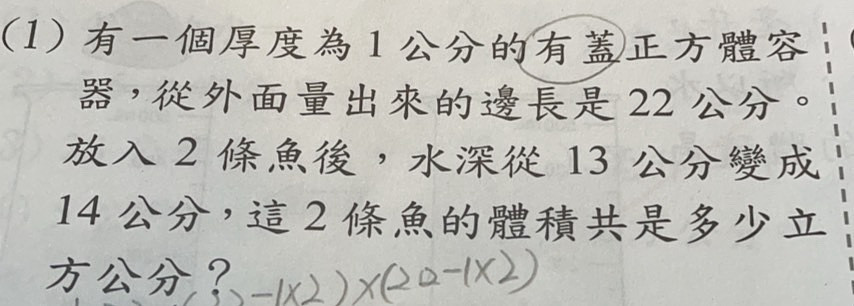 (1) 有一個厚度為 1 公分的有蓋正方體容
器，從外面量出來的邊長是 22 公分。
放入 2 條魚後，水深從 13 公分變成
14 公分，這 2 條魚的體積共是多少立
方公分？
-1×2)×(22-1×2)